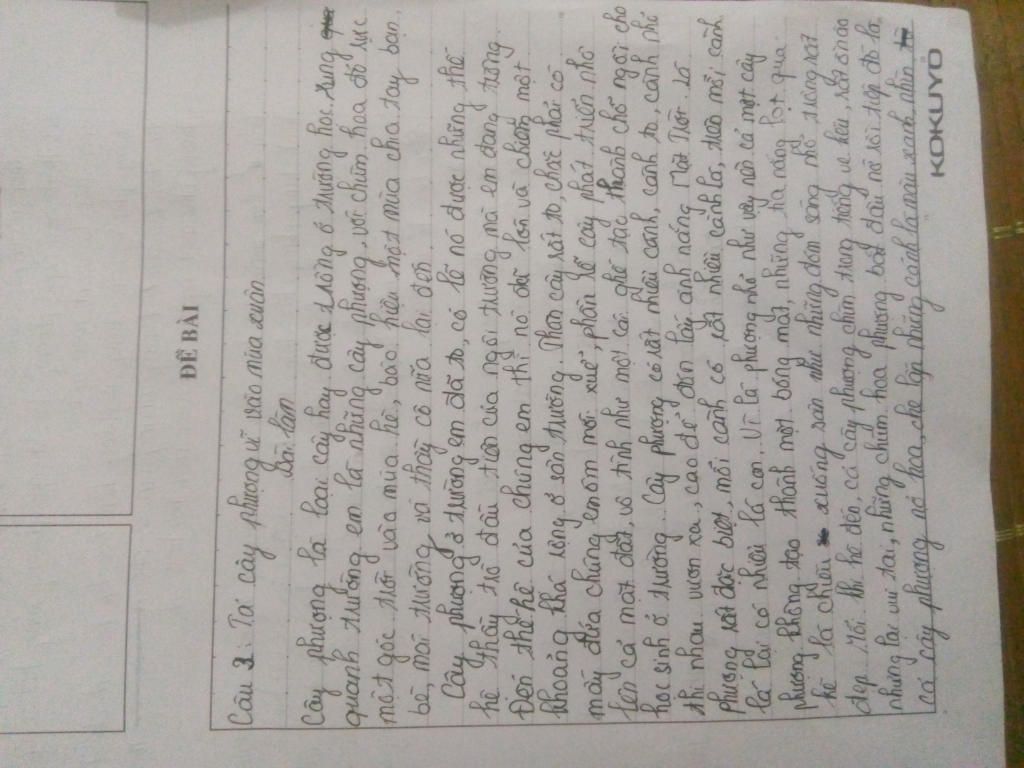 ĐỀ BÀI
Câu 3: Tả cây phượng vĩ vào mùa xuân
Bài làm
Cây phượng là loại cây hay được trồng ở trường học. Xung
quanh trường em là những cây phượng, với chùm hoa đỏ rực
một góc trời vào mùa hè, báo hiệu một mùa chia tay bạn
bè, mái trường và thầy cô nữa lại đến.
Cây phượng ở trường em đã to, có lẽ nó được những thế
hệ thầy trò đầu tiên của ngôi trường mà em đang trồng.
Đến thế hệ của chúng em thì nó đã lớn và chiếm một
khoảng khá rộng ở sân trường. Thân cây rất to, chắc phải có
mấy đứa chúng em ôm mới xuể, phần rễ cây phát triển nhô
lên cả mặt đất, vô tình như một cái ghế tạo thành chỗ ngồi cho
học sinh ở trường. Cây phượng có rất nhiều cành, cành to, cành nhỏ
thi nhau vươn xa, cao để đón lấy ánh nắng Mặt Trời. Lá
phượng rất đặc biệt, mỗi cành có rất nhiều cành lá, trên mỗi cành
lá lại có nhiều lá con. Vì lá phượng nhỏ như vậy nên cả một cây
phượng không tạo thành một bóng mát, những tia nắng lọt qua
kẽ lá chiếu xuống sân như những đốm sáng nhỏ trông rất
đẹp. Tới khi hè đến, cả cây phượng chim trong trống ve kêu, rất ồn ào
nhưng lại vui tai, những chùm hoa phượng bắt đầu nở rồi tiếp đó là,
cả cây phượng nở hoa, che lấp những cành lá màu xanh, nhìn
KOKUYO